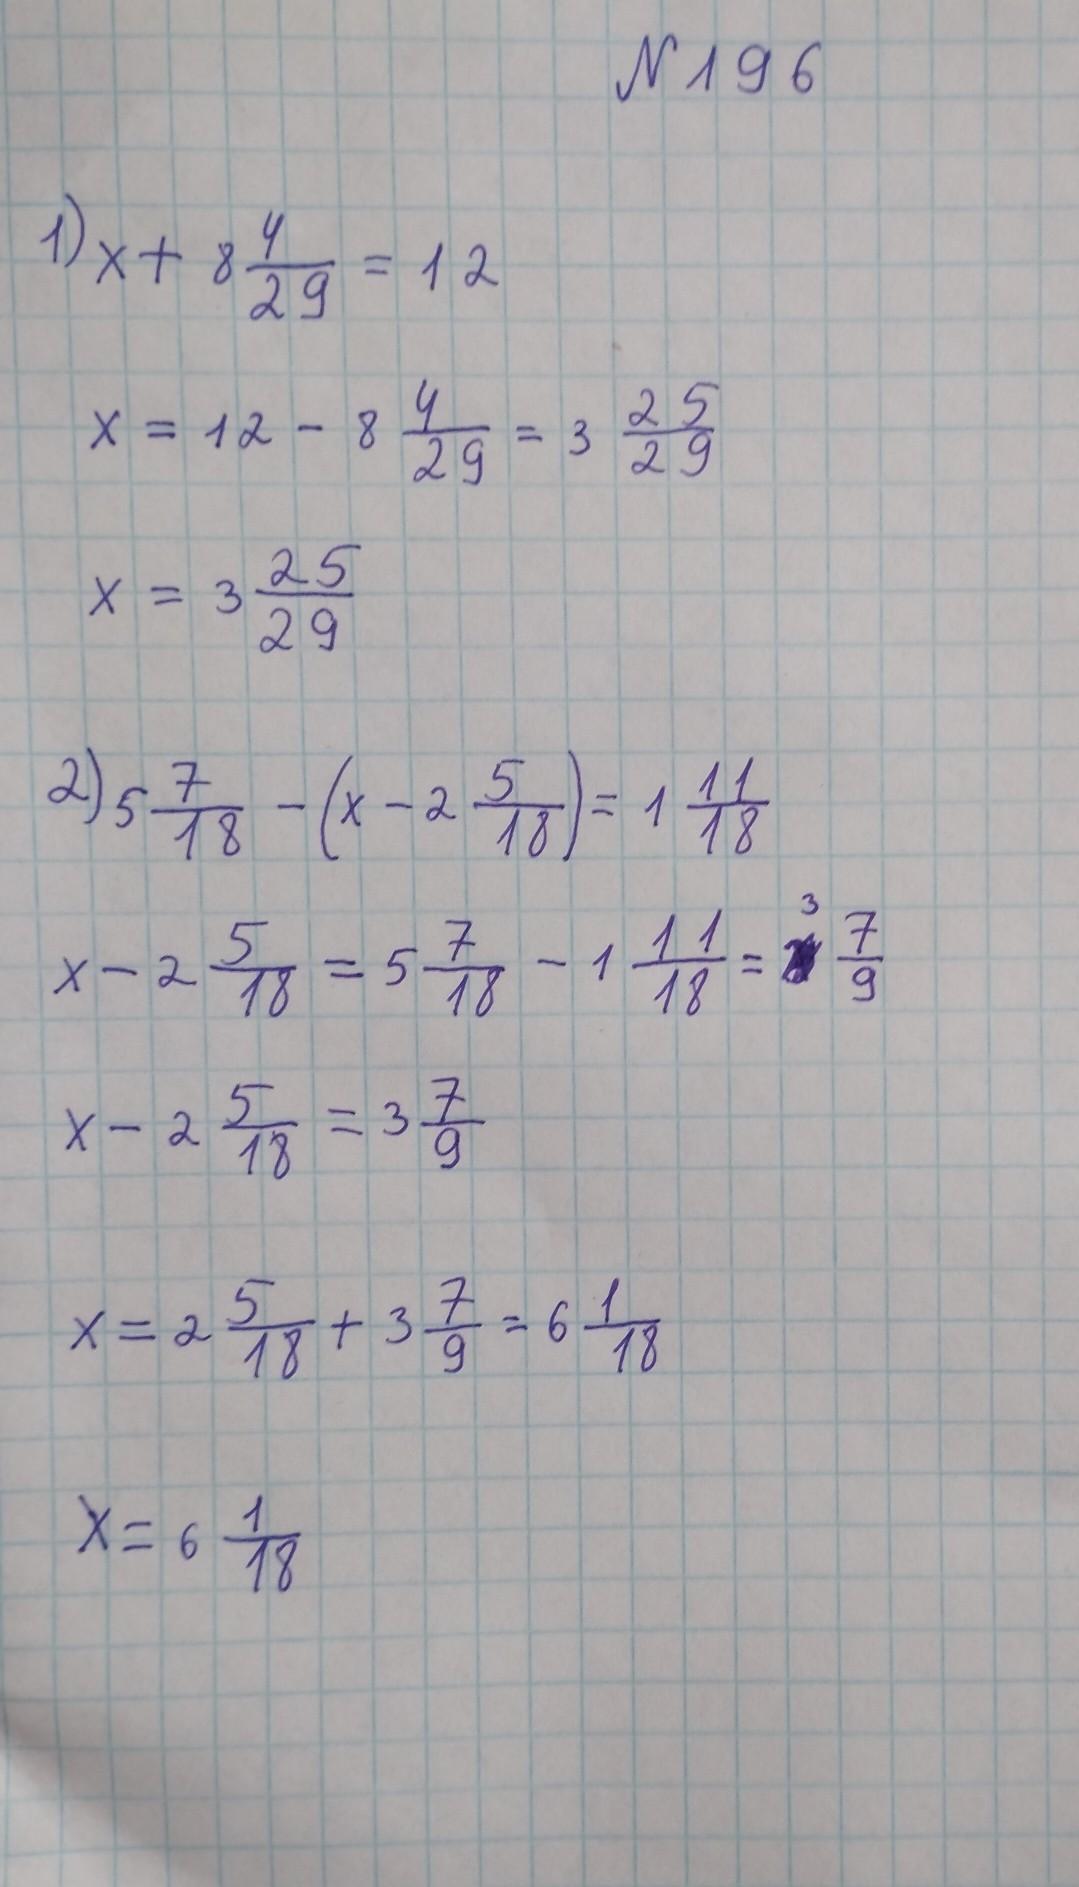 N 196
1) x + 8 4/29 = 12
x = 12 - 8 4/29 = 3 25/29
x = 3 25/29
2) 5 7/18 - (x - 2 5/18) = 1 11/18
x - 2 5/18 = 5 7/18 - 1 11/18 = 3 7/9
x - 2 5/18 = 3 7/9
x = 2 5/18 + 3 7/9 = 6 1/18
x = 6 1/18